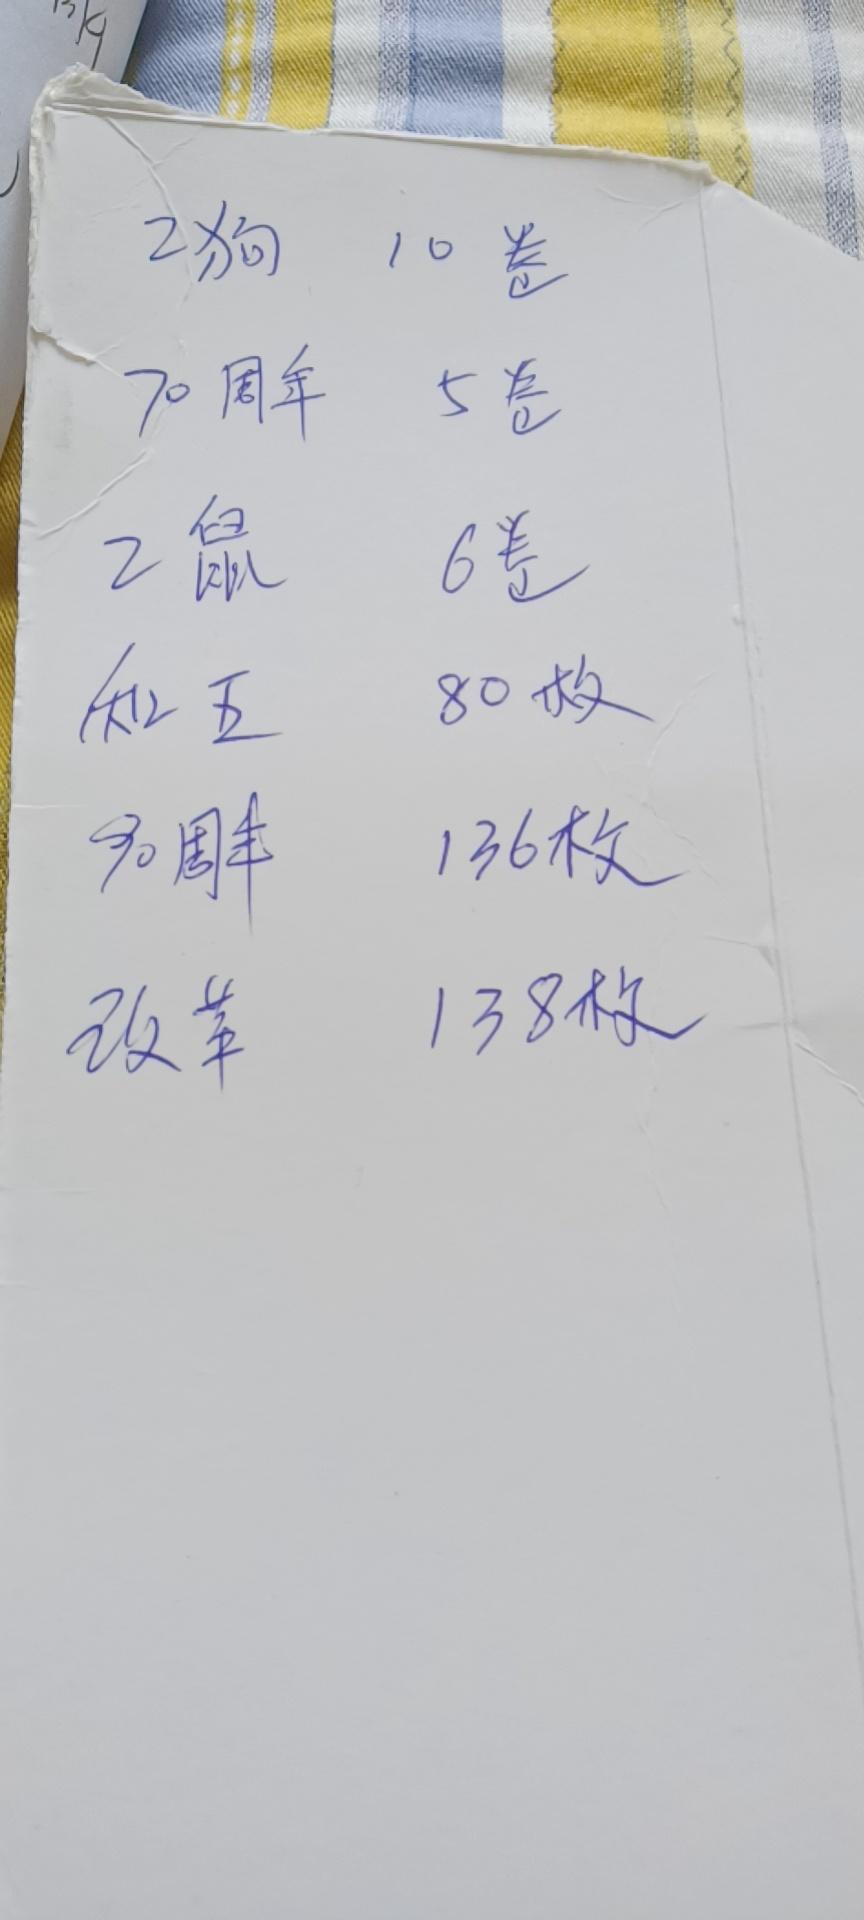 2狗 10卷
70周年 5卷
2鼠 6卷
和五 80枚
30周年 136枚
改革 138枚